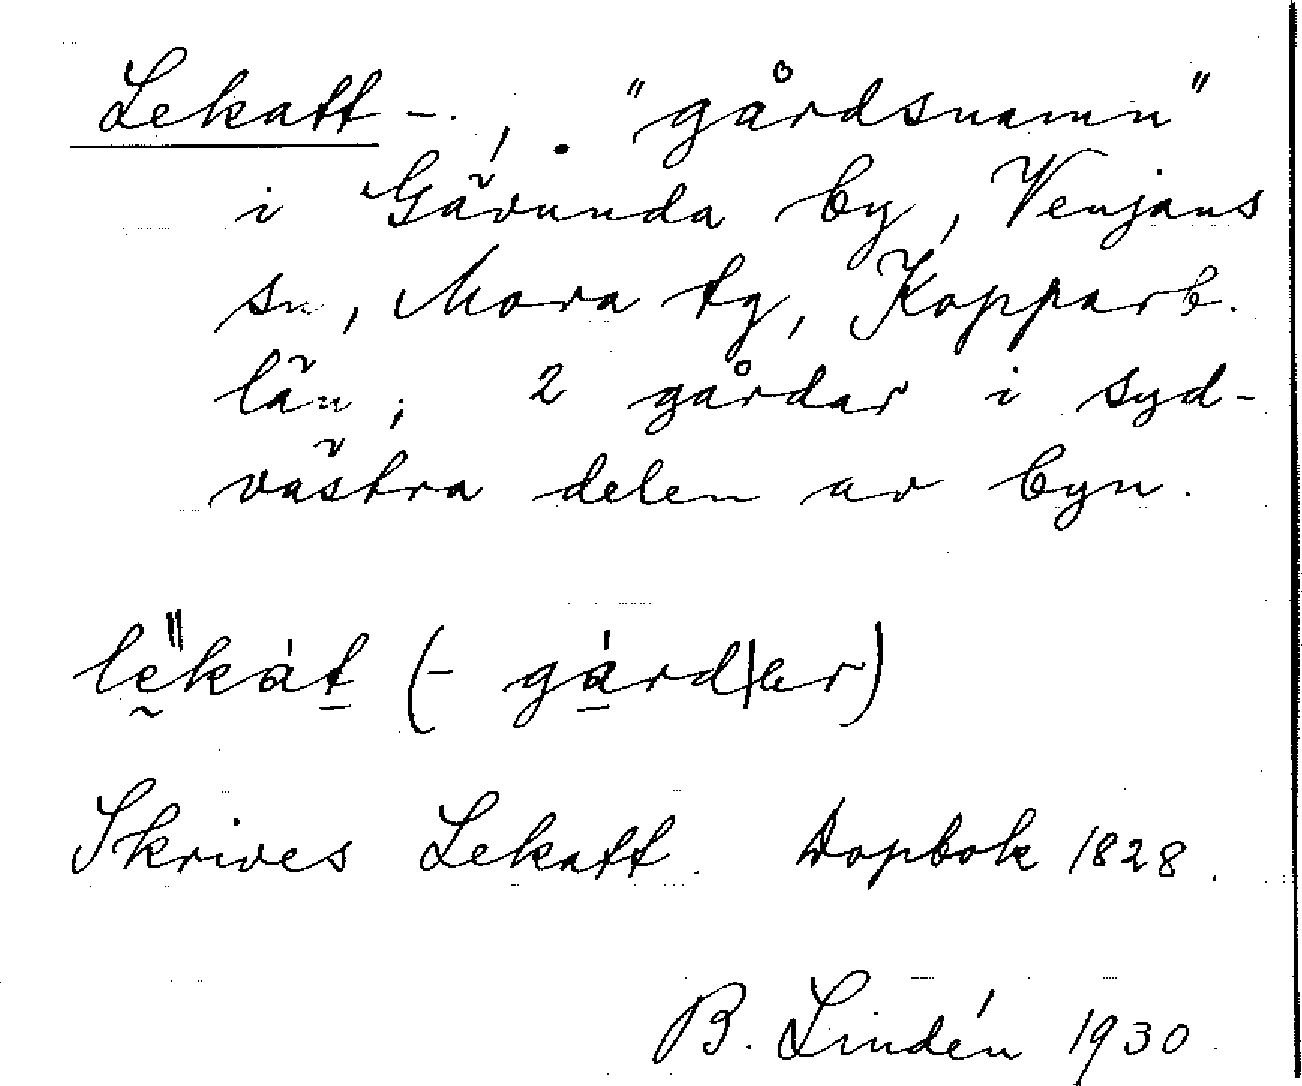 Lekatt-, . "gårdsnamn"
i Gävunda by, Venjans
sn, Mora tg, Kopparb.
län; 2 gårdar i syd-
västra delen av byn.
lek̀at (- gård|er)
Skrives Lekatt. Dopbok 1828.
B. Lindén 1930